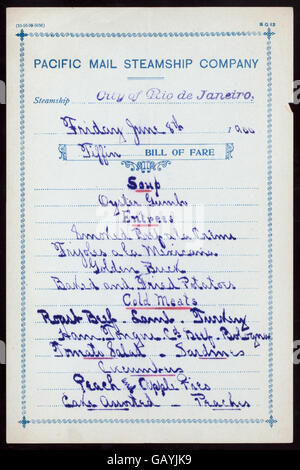 PACIFIC MAIL STEAMSHIP COMPANY
Steamship City of Rio de Janeiro.
Friday June 8th 1900
Tiffin BILL OF FARE
Soup
Oyster Gumbo
Entrees
Smoked Beef a la Creme
Tripe a la Mexicaine
Golden Buck
Baked and Fried Potatoes
Cold Meats
Roast Beef - Lamb - Turkey
Ham Tongue Cd Beef
Tomato Salad - Sardines
Cucumbers
Peach & Apple Pies
Cake Assorted - Peaches
alamy
GAYJK9
www.alamy.com